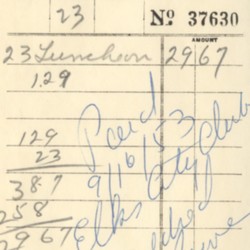 23 No 37630
AMOUNT
23 Luncheon 29 67
1.29
129
23
387
258
2967
Paid
9/16/53
Elks City Club